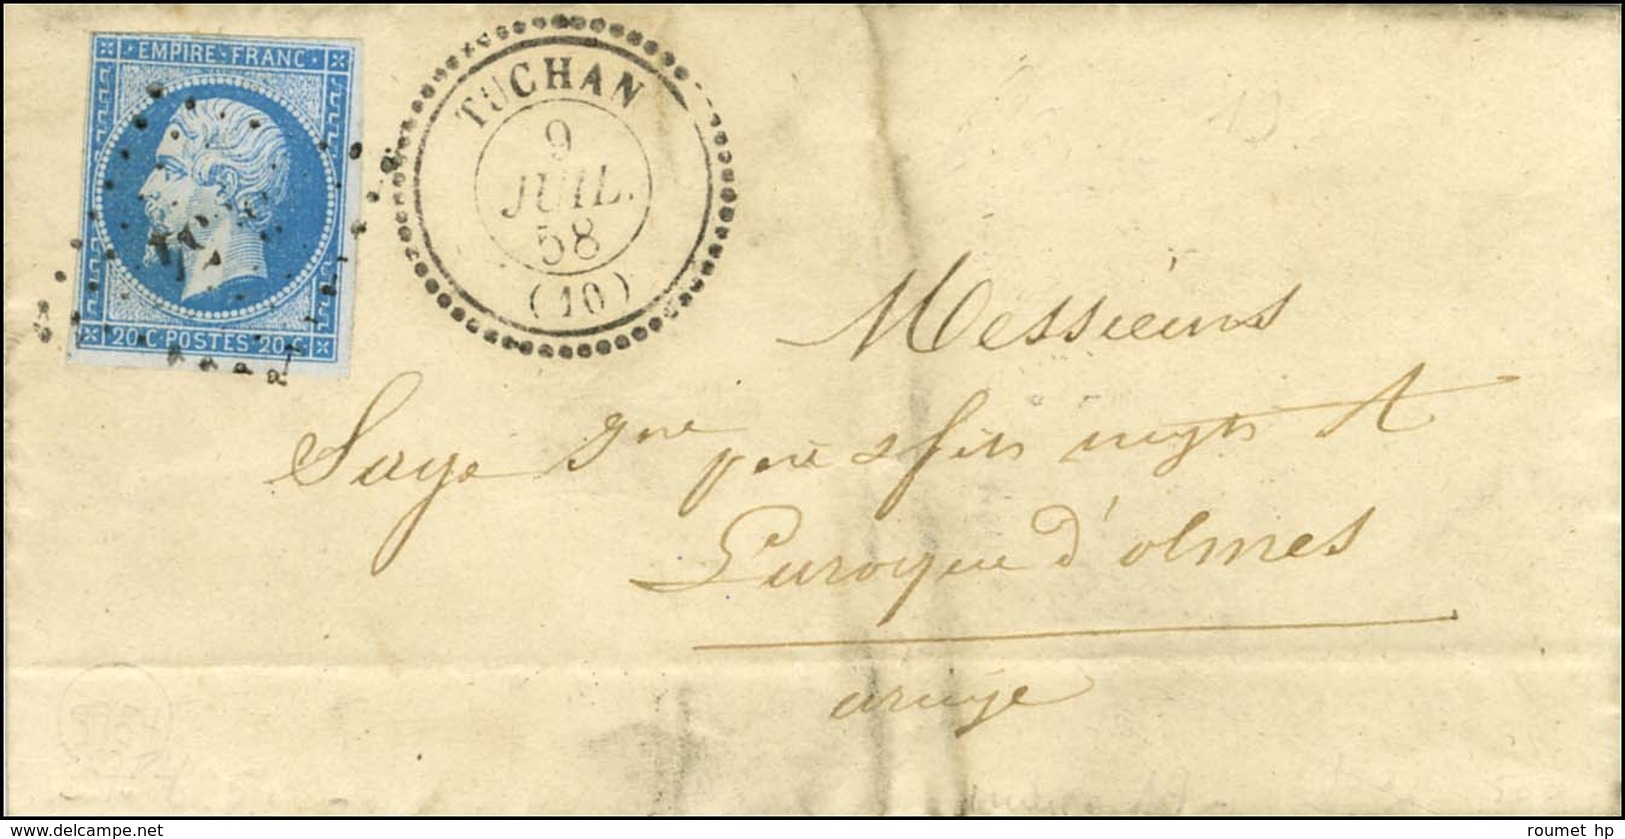 EMPIRE FRANC
20 C POSTES 20 C
TUCHAN
9
JUIL.
58
(10)
Messieurs
Saye père & fils A
Laroque d'olmes
ariège
delcampe.net
roumet hp